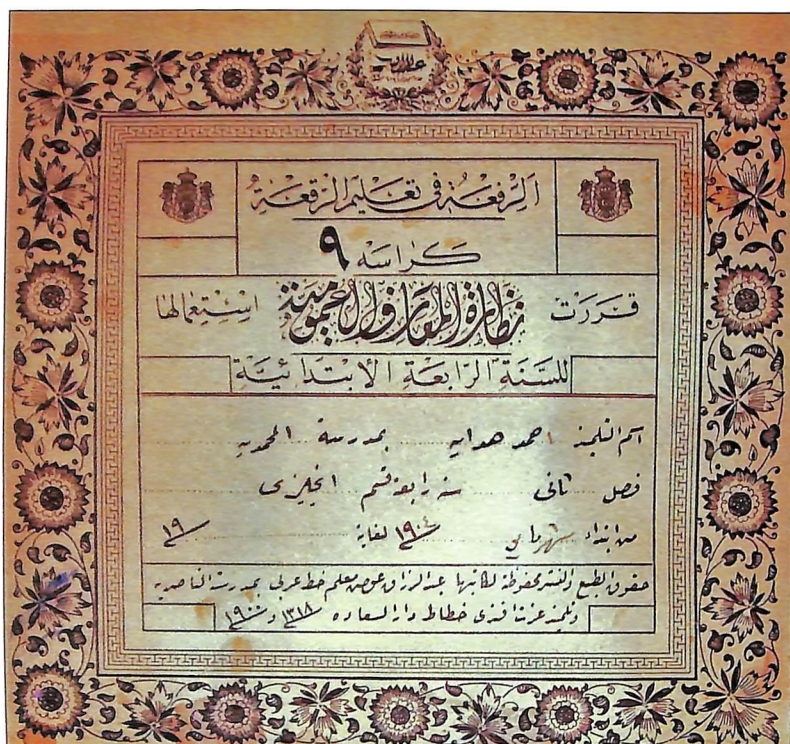 الرفعة في تعليم الرقعة
كراسه ٩
قررت نظارة المعارف العمومية استعمالها
للسنة الرابعة الابتدائية
اسم التلميذ احمد هدايه بمدرسة المحمديه
فصل ثانى سنه رابعة قسم انجليزى
من ابتداء شهر مايو ١٩٠٤ لغاية ١٩
حقوق الطبع والنشر محفوظة لكاتبها عبد الرزاق عوض معلم خط عربى بمدرسة الناصريه
وتلميذ عزت افندى خطاط دار السعاده ١٣١٨ و ١٩٠٠